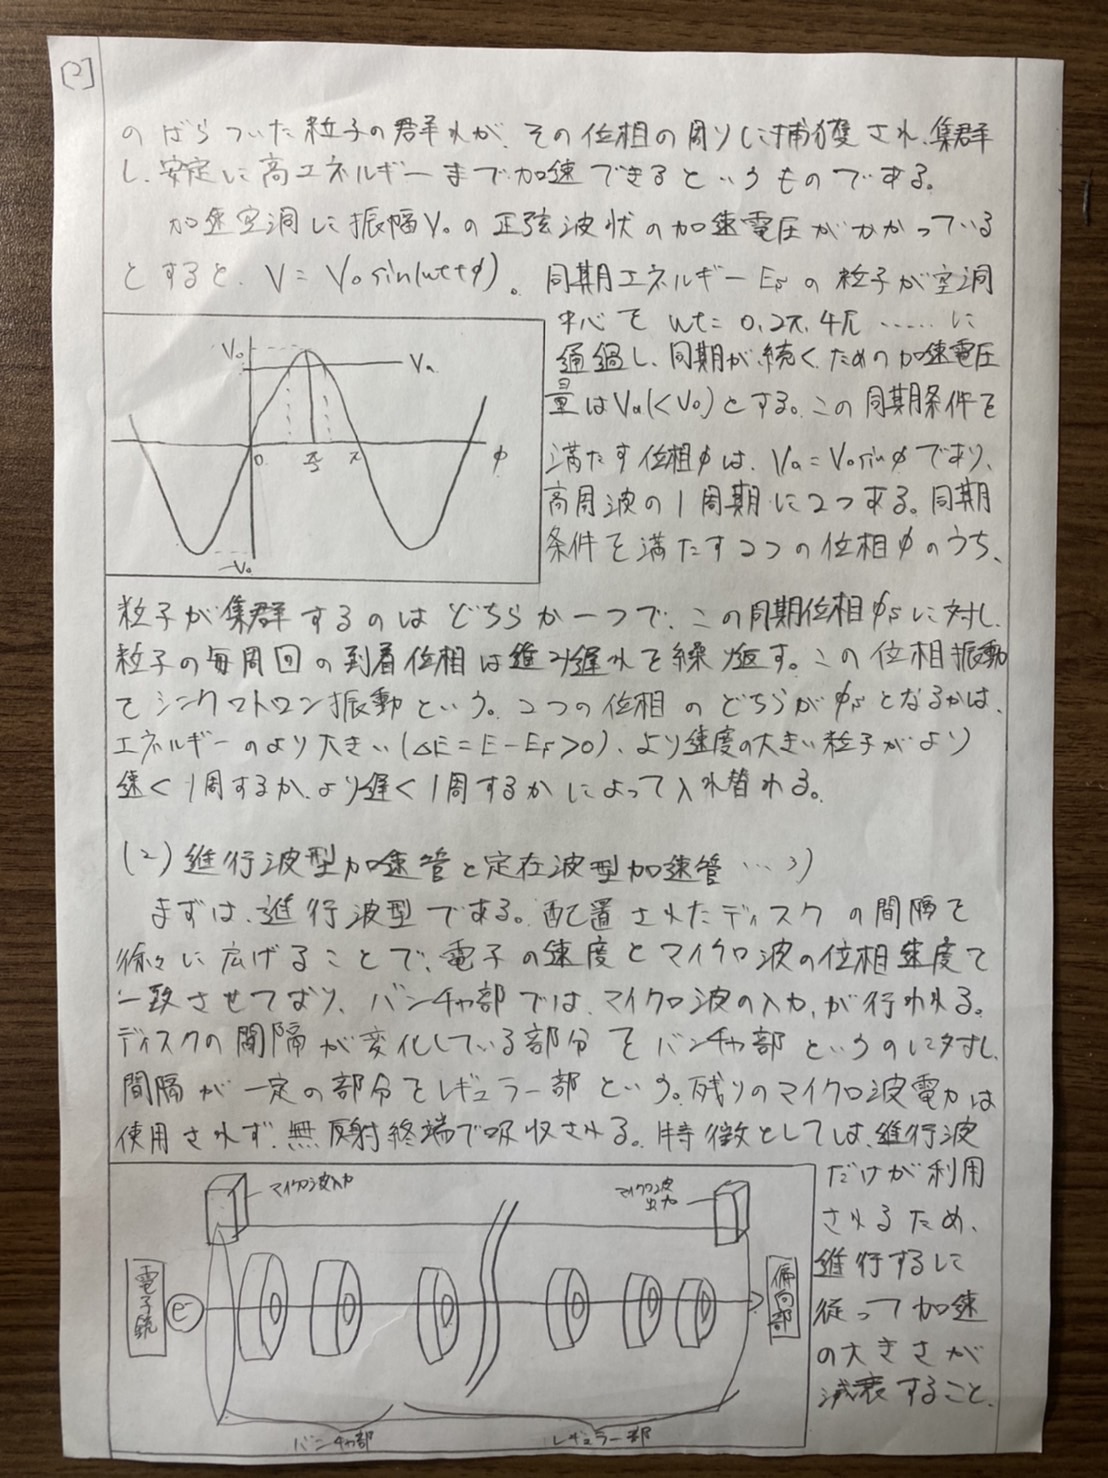 [2]
のばらついた粒子の群れが、その位相の周りに捕獲され、集群
し、安定に高エネルギーまで加速できるというものである。
加速空洞に振幅V₀の正弦波状の加速電圧がかかっている
とすると、V = V₀sin(ωt+φ)。同期エネルギーEsの粒子が空洞
中心を ωt = 0, 2π, 4π ……に
通過し、同期が続くための加速電圧
量はVa(<V₀)とする。この同期条件を
満たす位相φは、Va = V₀sinφであり、
高周波の1周期に2つある。同期
条件を満たす2つの位相φのうち、
V₀
Va
0
π/2
π
φ
-V₀
粒子が集群するのはどちらか一つで、この同期位相φsに対し、
粒子の毎周回の到着位相は進み遅れを繰り返す。この位相振動
をシンクロトロン振動という。2つの位相のどちらがφsとなるかは、
エネルギーのより大きい(ΔE = E - Es > 0)、より速度の大きい粒子がより
速く1周するか、より遅く1周するかによって入れ替わる。
(2) 進行波型加速管と定在波型加速管 … 3)
まずは、進行波型である。配置されたディスクの間隔を
徐々に広げることで、電子の速度とマイクロ波の位相速度を
一致させており、バンチャ部では、マイクロ波の入力が行われる。
ディスクの間隔が変化している部分をバンチャ部というのに対し、
間隔が一定の部分をレギュラー部という。残りのマイクロ波電力は
使用されず、無反射終端で吸収される。特徴としては、進行波
だけが利用
されるため、
進行するに
従って加速
の大きさが
減衰すること、
マイクロ波入力
マイクロ波
出力
電子銃
e-
偏向部
バンチャ部
レギュラー部